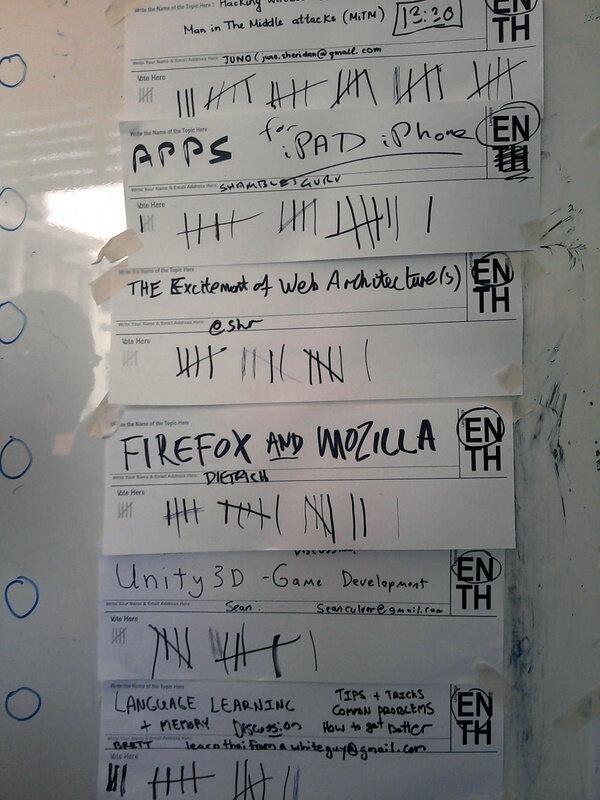 Write the Name of the Topic Here: Hacking
Man in The Middle attacks (MiTM) 13:30
EN
TH
Write Your Name & Email Address Here: JUNO (juno.sheridan@gmail.com
Vote Here
Write the Name of the Topic Here
APPS for iPAD iPhone
EN
Write Your Name & Email Address Here: SHAMBLESGURU
Vote Here
the Name of the Topic Here
THE Excitement of Web Architecture(s)
EN
TH
Write Your Name & Email Address Here:
@shr
Vote Here
the Name of the Topic Here
FIREFOX AND MOZILLA
EN
TH
Write Your Name & Email Address Here: DIETRICH
Vote Here
Discussion
Unity 3D - Game Development
EN
TH
Write Your Name & Email Address Here: Sean: Seanculver@gmail.com
Vote Here
Write the Name of the Topic Here
LANGUAGE LEARNING TIPS + TRICKS
COMMON PROBLEMS
+ MEMORY Discussion How to get better
EN
TH
Write Your Name & Email Address Here
BRETT learnthaifromawhiteguy@gmail.com
Vote Here